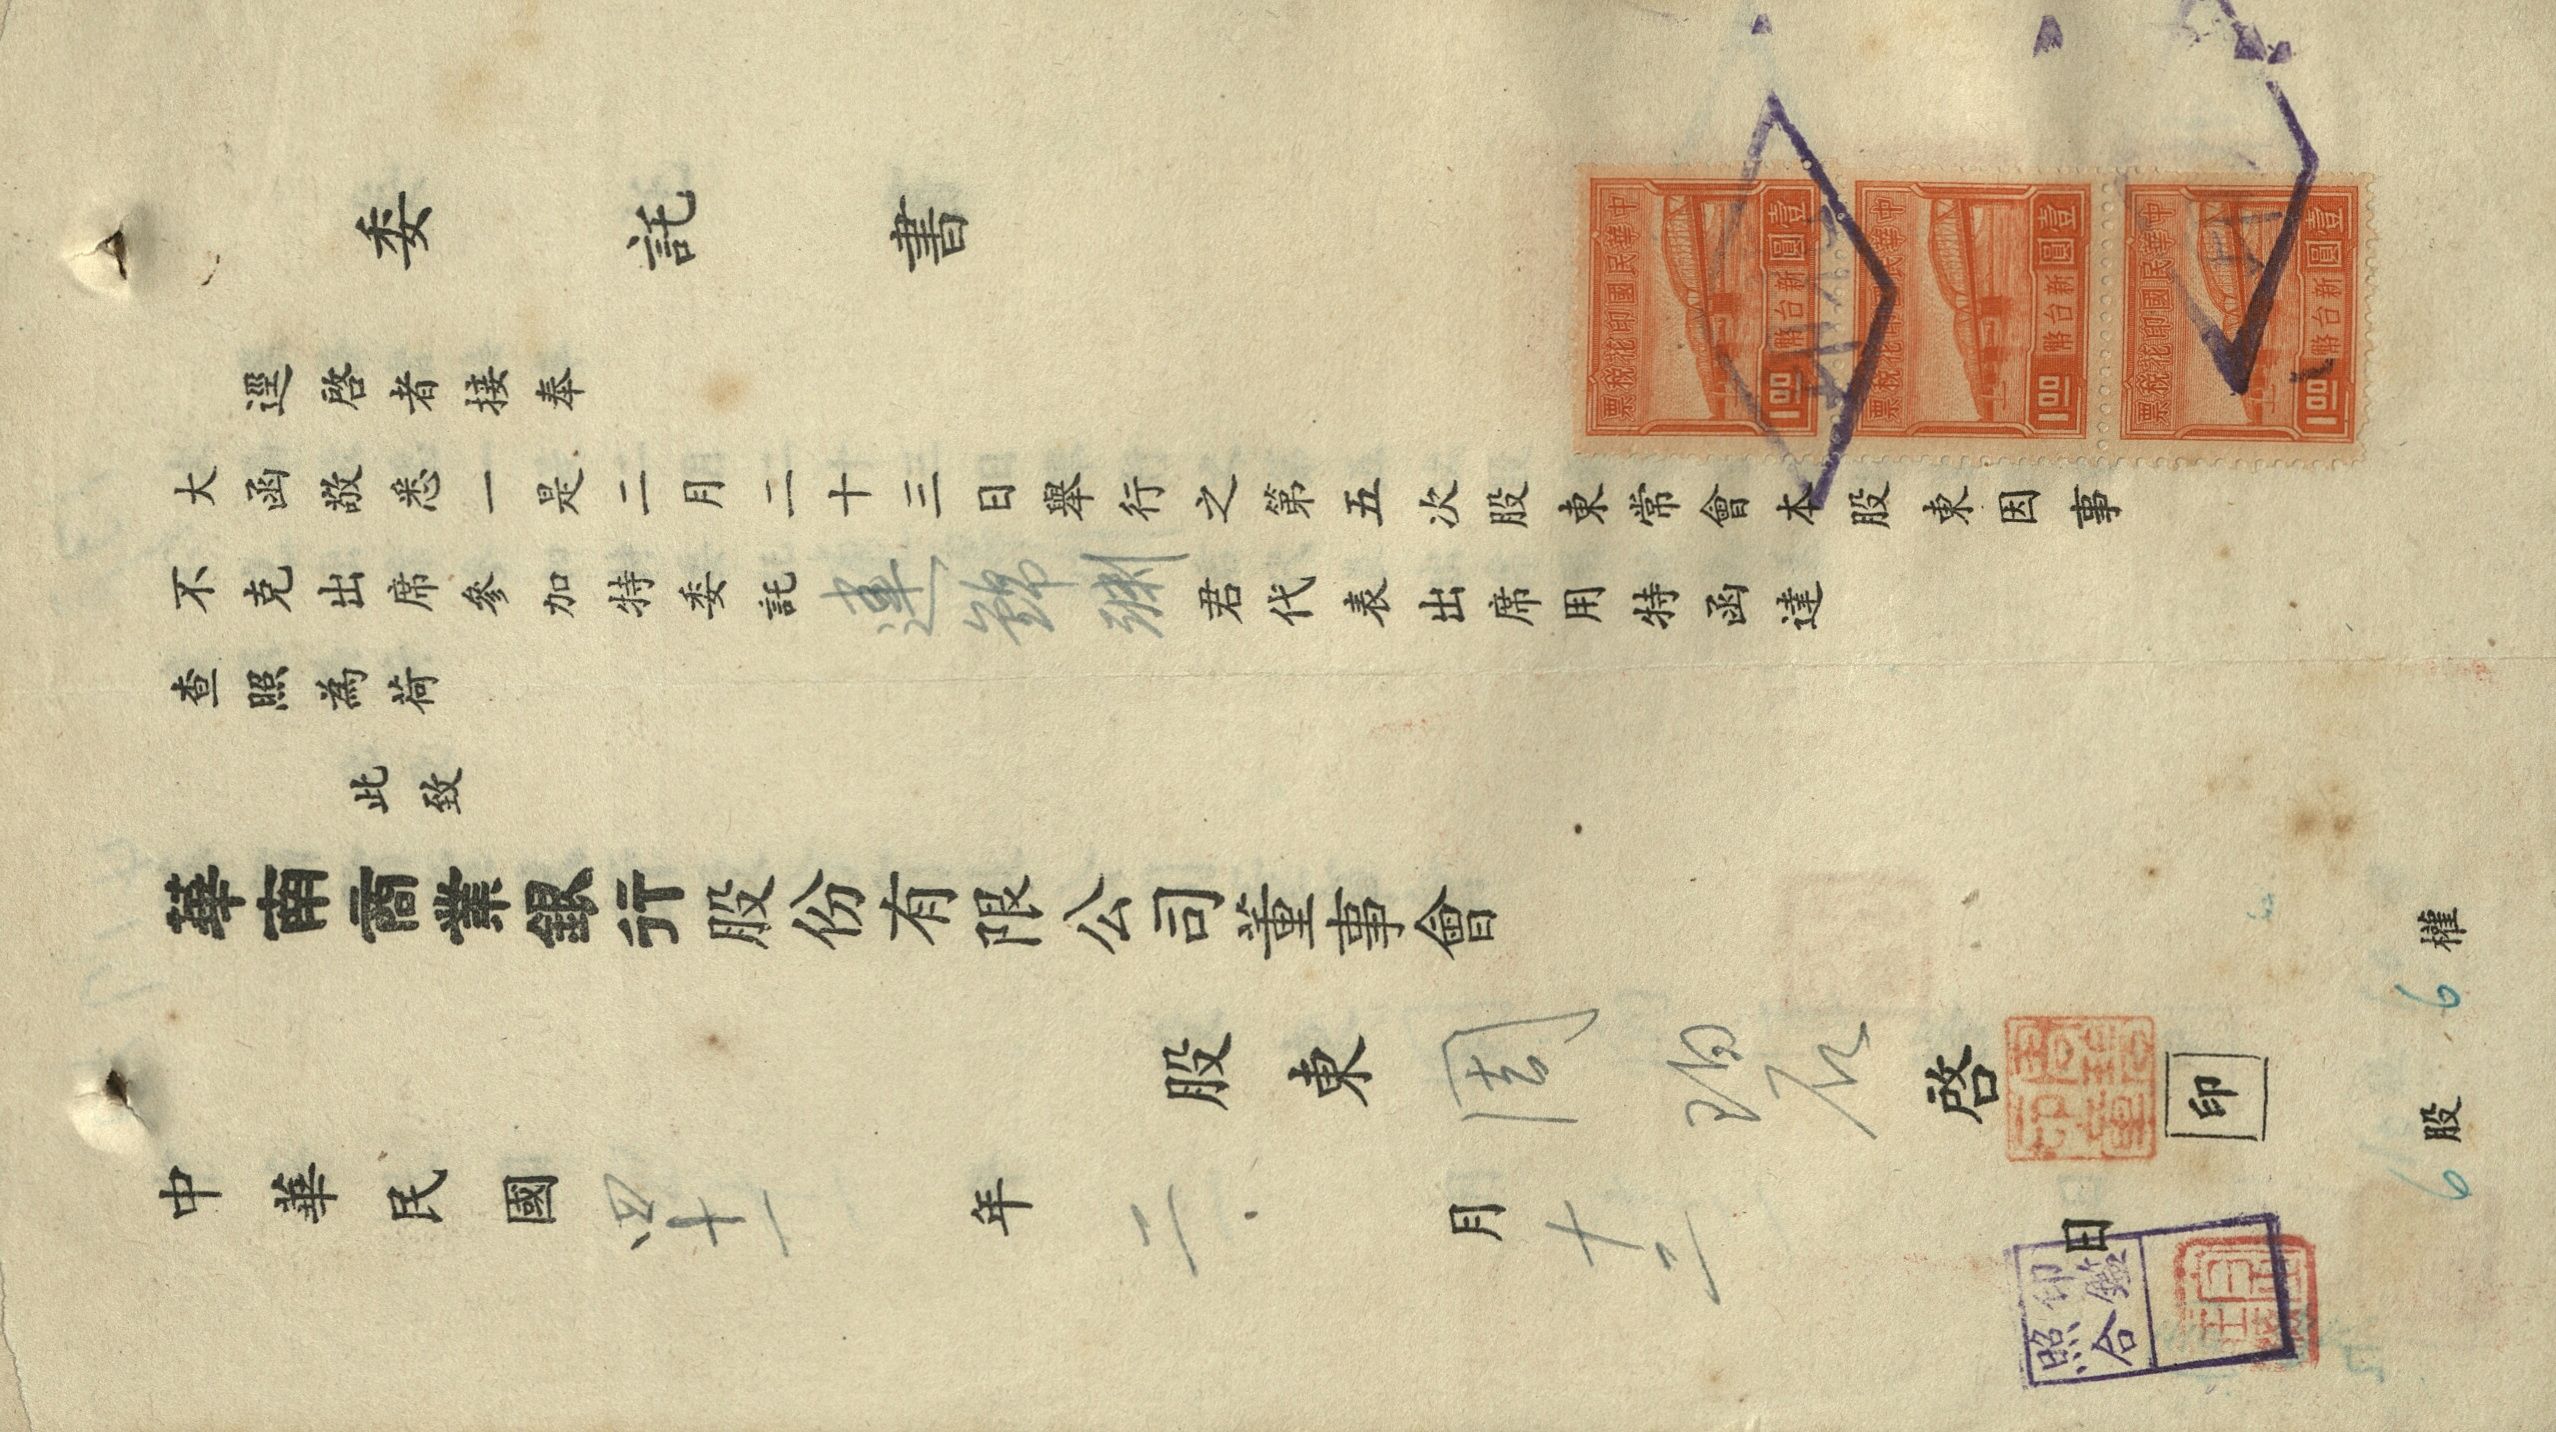 委託書
逕啓者接奉
大函敬悉一是二月二十三日舉行之第五次股東常會本股東因事
不克出席參加特委託連錦淵君代表出席用特函達
查照為荷
此致
華南商業銀行股份有限公司董事會
股東周 啓
印
中華民國四十一年二月十二日
6股 6權
印鑑
照合
中華民國印花稅票
壹圓
新台幣
1.00
中華民國印花稅票
壹圓
新台幣
1.00
中華民國印花稅票
壹圓
新台幣
1.00